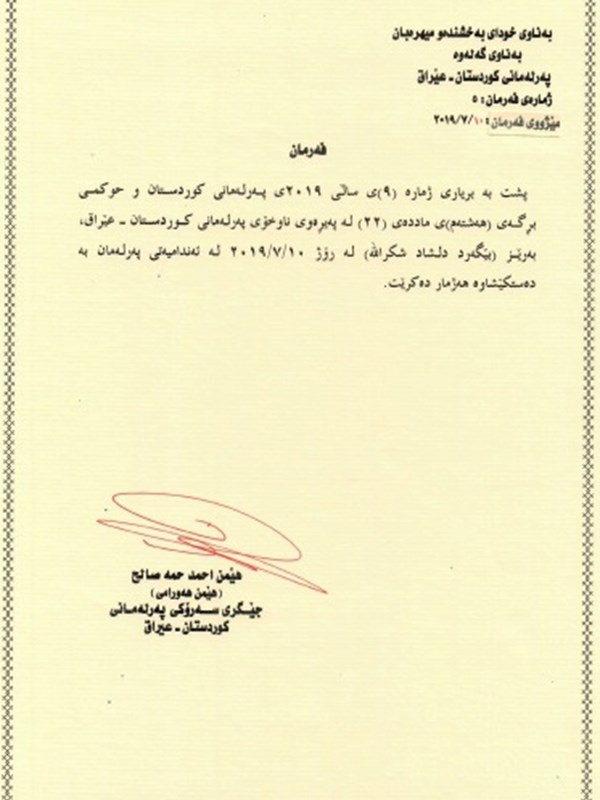 بەناوی خودای بەخشندەو میهرەبان
بەناوی گەلەوە
پەرلەمانی کوردستان - عێراق
ژمارەی فەرمان: ٥
مێژووی فەرمان: ٢٠١٩/٧/١٠
فەرمان
پشت بە بریاری ژمارە (٩)ی ساڵی ٢٠١٩ی پەرلەمانی کوردستان و حوکمی
برگەی (هەشتەم)ی ماددەی (٢٢) لە پەیرەوی ناوخۆی پەرلەمانی کوردستان - عێراق،
بەرێز (بێگەرد دلشاد شکرالله) لە رۆژ ٢٠١٩/٧/١٠ لە ئەندامیەتی پەرلەمان بە
دەستکێشاوە هەژمار دەکرێت.
هێمن احمد حمه صالح
(هێمن هەورامی)
جێگری سەرۆکی پەرلەمانی
کوردستان - عیراق